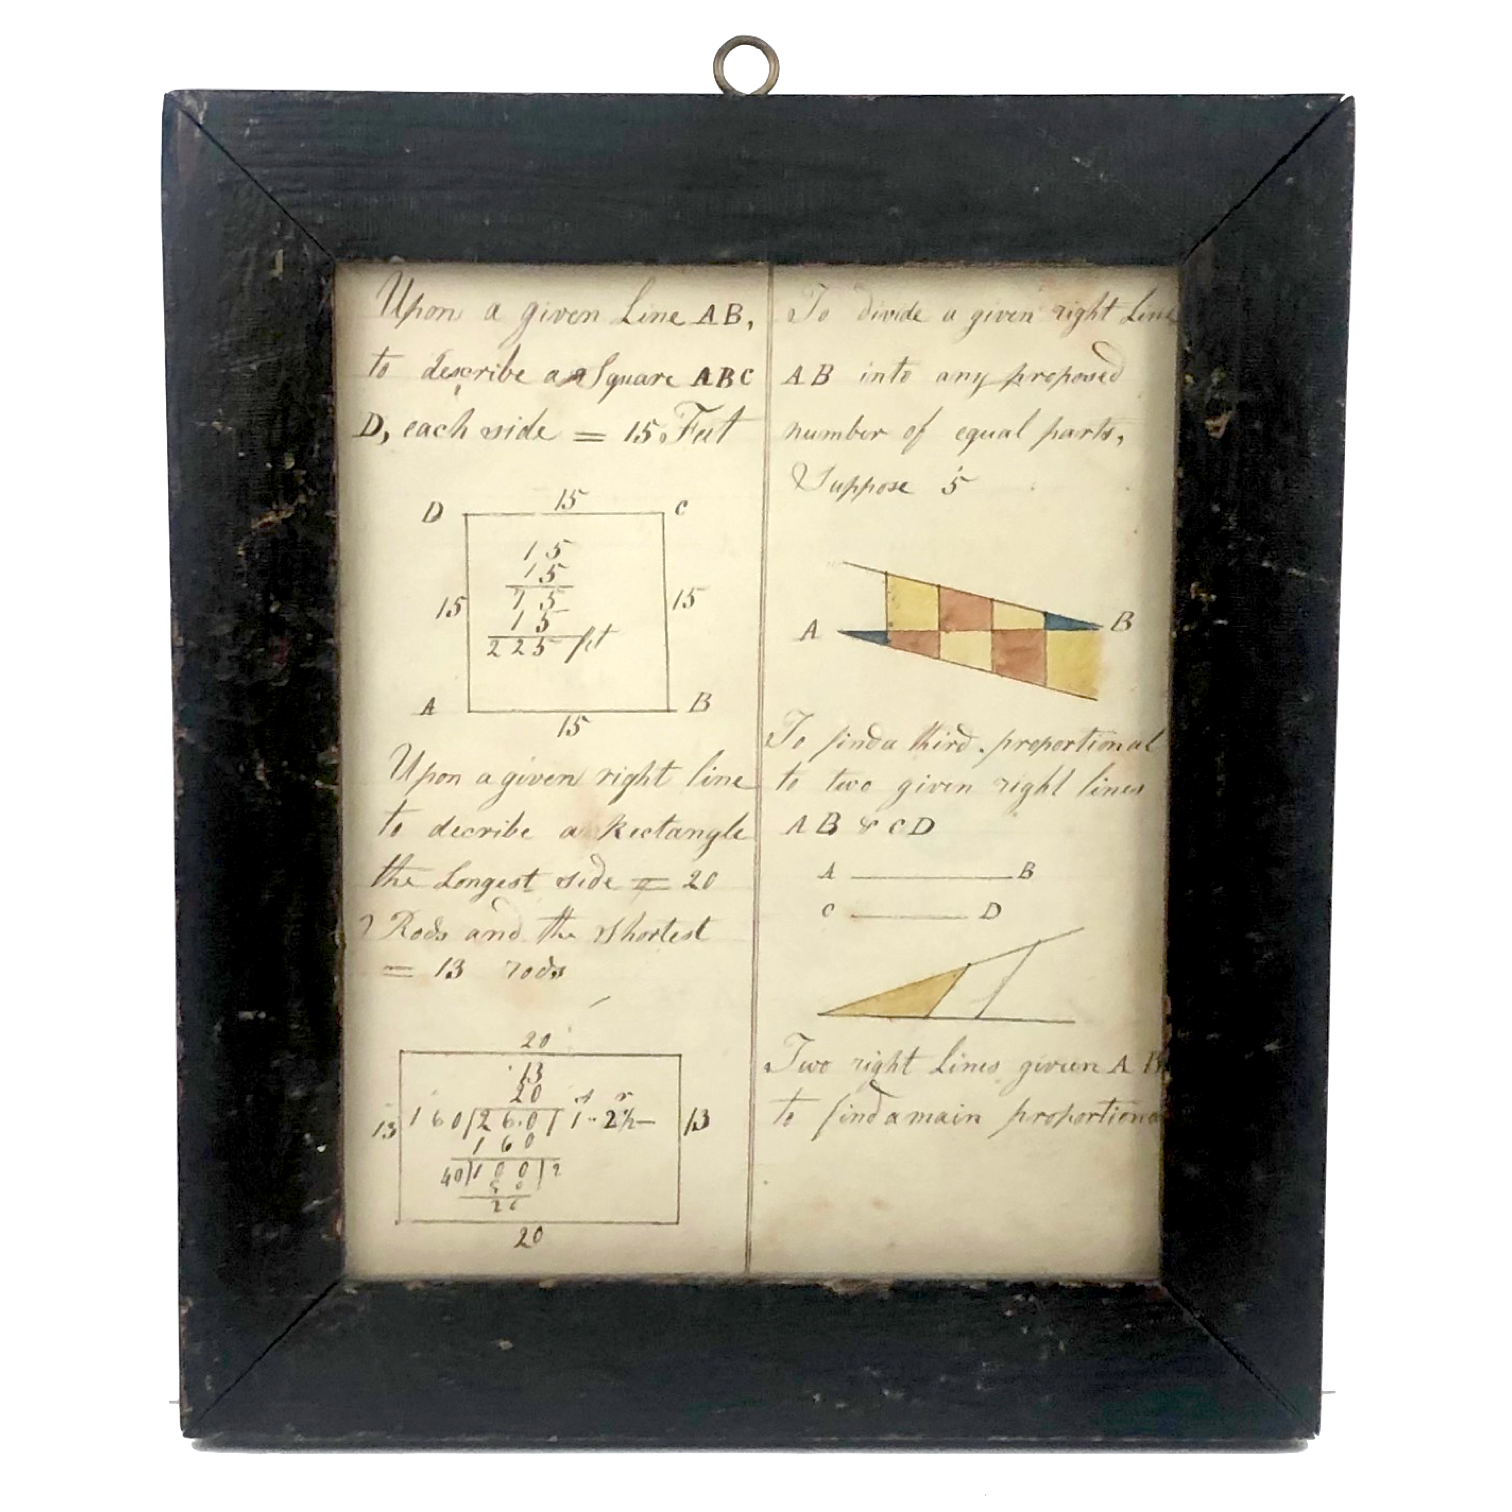 Upon a given Line AB,
to describe a Square ABC
D, each side = 15 Feet
15
D C
15
15
15 15
7 5
1 5
2 2 5 fet
A B
15
Upon a given right line
to decribe a Rectangle
the Longest side = 20
Rods and the shortest
= 13 rods
20
13
20
13 160)260(1--2½ 13
160
40)100(2
80
20
20
To divide a given right Line
AB into any proposed
number of equal parts,
Suppose 5
A B
To find a third proportional
to two given right lines
AB & CD
A B
C D
Two right Lines given A B
to find a main proportiona